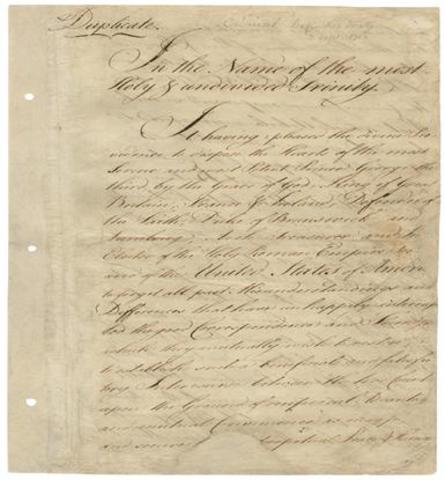 Duplicate.
In the Name of the most
Holy & undivided Trinity.
It having pleased the divine Pro
vidence to dispose the Hearts of the most
Serene and most Potent Prince George the
third, by the Grace of God, King of Great
Britain, France & Ireland, Defender of
the Faith, Duke of Brunswick and
Lunebourg, Arch Treasurer, and
Elector of the Holy Roman Empire &c
and of the United States of America
to forget all past Misunderstandings and
Differences that have unhappily interrup
ted the good Correspondence and Friendship
which they mutually wish to restore;
to establish such a beneficial and satisfac
tory Intercourse between the two Countries
upon the Ground of reciprocal Advantages
and mutual Convenience as may
and secure perpetual Peace & Harmony